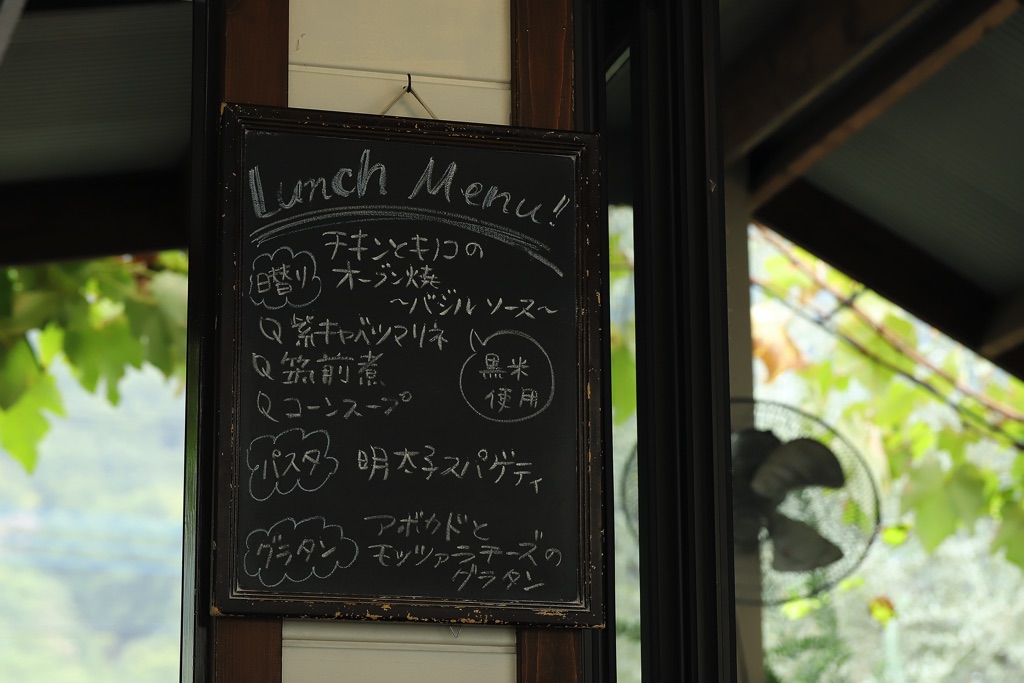 Lunch Menu!!
日替り
チキンとキノコの
オーブン焼
～バジル ソース～
紫キャベツマリネ
筑前煮
コーンスープ
黒米
使用
パスタ
明太子スパゲティ
グラタン
アボカドと
モッツァラチーズの
グラタン